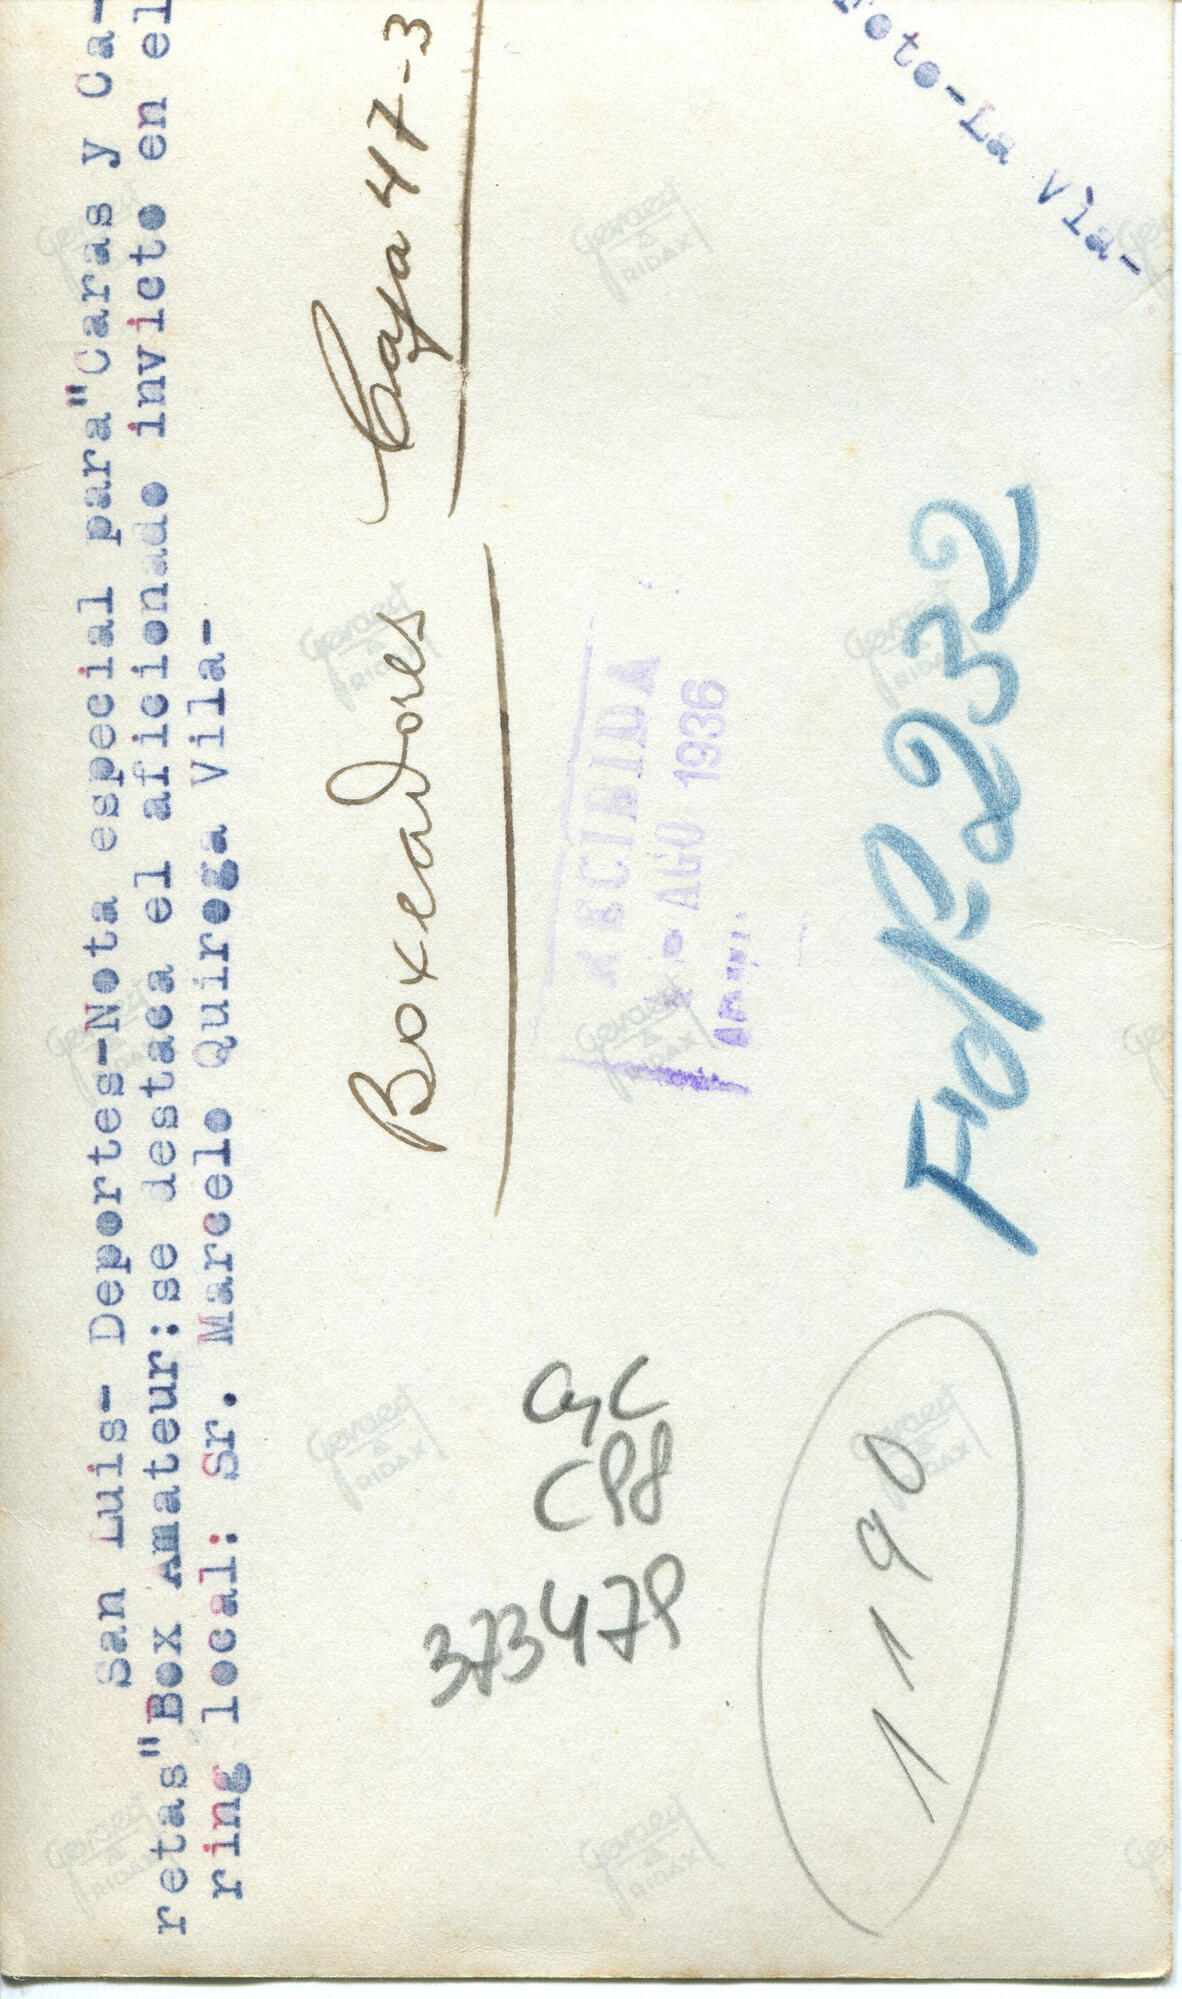 San Luis- Deportes-Nota especial para"Caras y Ca-
retas"Box Amateur:se destaca el aficionado invicto en el
ring local: Sr. Marcelo Quiroga Vila-
Boxeadores Caja 47-3
Foto-La Vìa-
RECIBIDA
AGO 1936
232
CyC
373478
1190
Gevaert
RIDAX